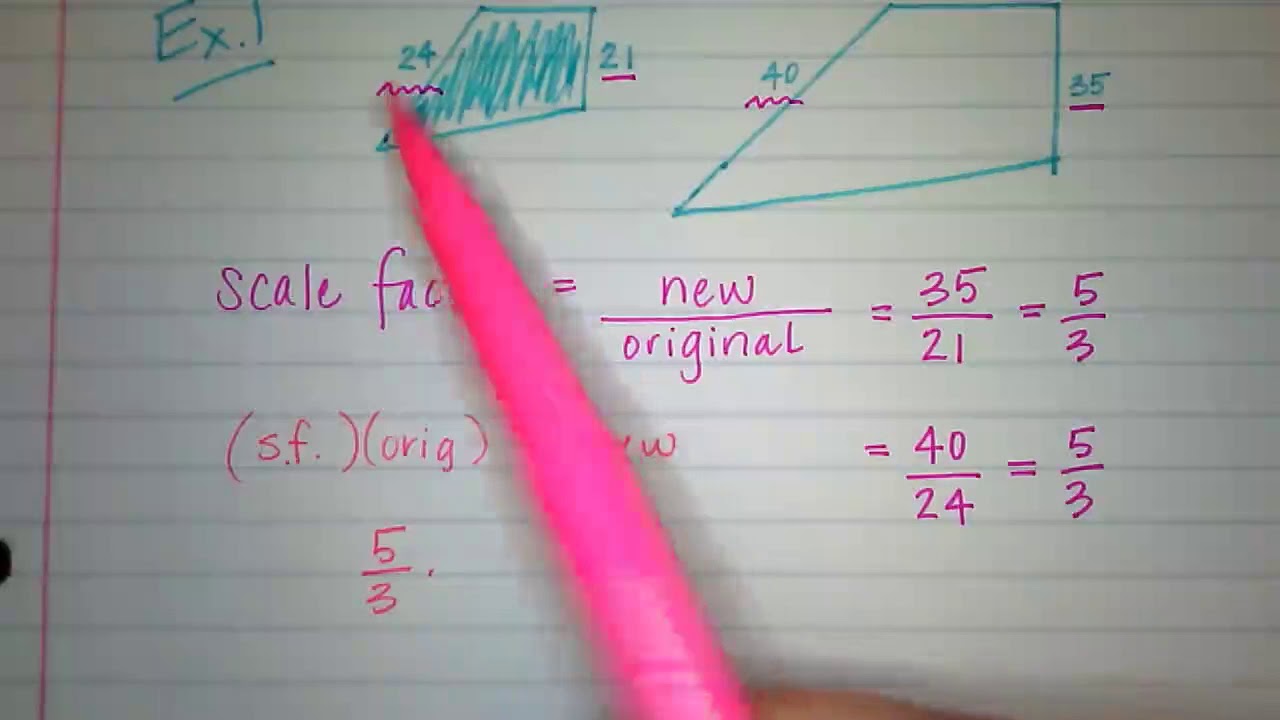 Ex.1
24 21 40 35
scale = new/original = 35/21 = 5/3
(s.f.)(orig) = 40/24 = 5/3
5/3 .